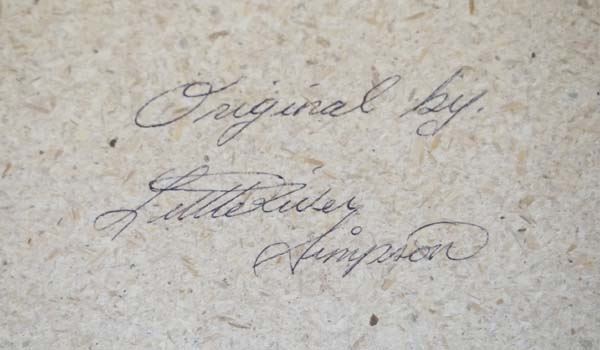 Original by.
Little River
Simpson